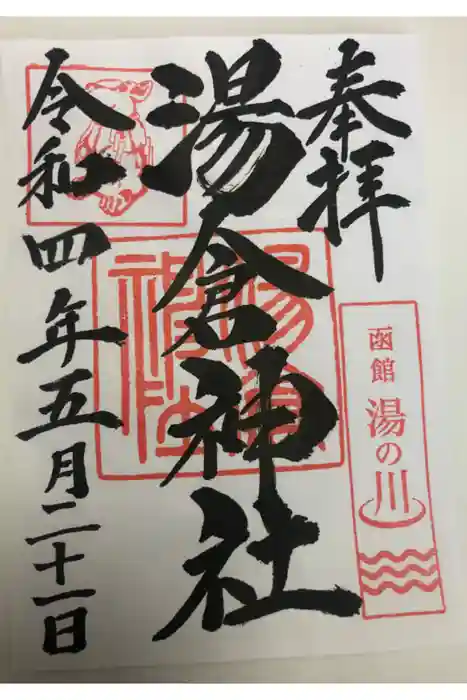 奉拝
函館 湯の川
湯倉神社
令和四年五月二十一日